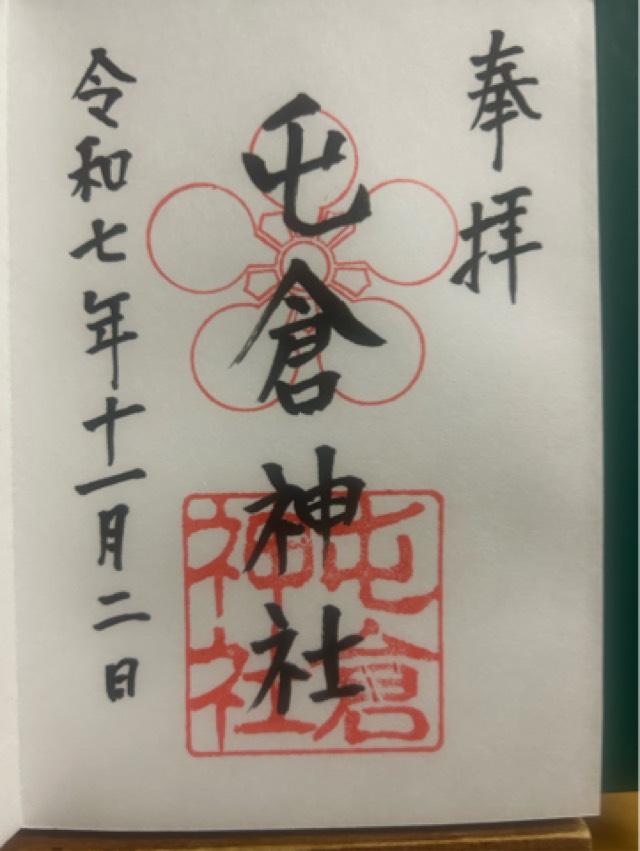 奉拝
屯倉神社
令和七年十一月二日
屯倉
神社